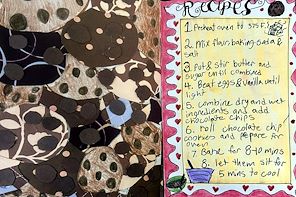 Recipes:
1. Preheat oven to 375 F!
2. Mix flour, baking soda &
salt
3. Put & stir butter and
sugar until combined
4. Beat eggs & vanilla until
light
5. combine dry and wet
ingredients and add
chocolate chips
6. roll chocolate chip
cookies and prepare for
oven
7. Bake for 8-10 mins
8. let them sit for
5 mins to cool